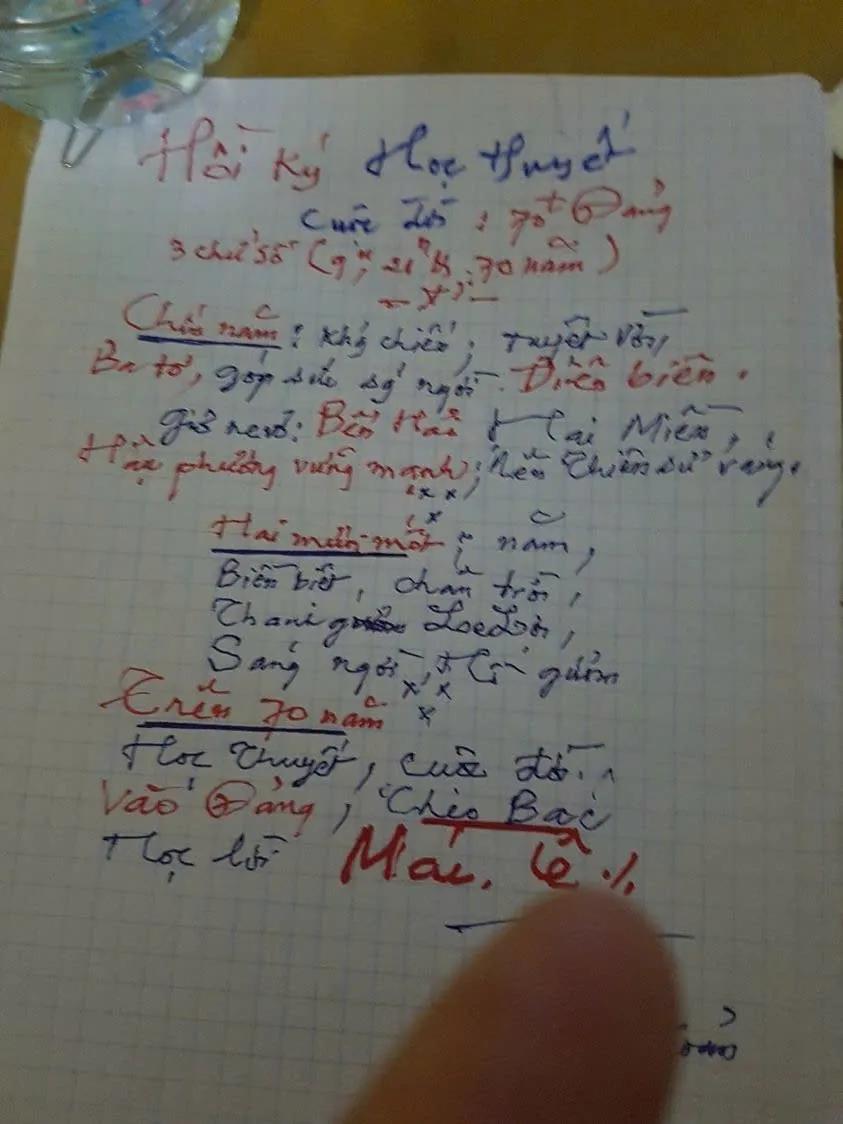 Hồi Ký Học thuyết
Cuộc đời : 70 t Đảng
3 chữ số (9 n, 21 n, 70 năm)
Chín năm : Khg chiến ; tuyệt vời,
góp sức sg ngời. Điện biên.
giờ Bến Hải Hai Miền,
Hậu phương vững mạnh ; nên Thiên sử vàng.
Hai mươi mốt ; năm,
Biền biệt, chân trời,
Thành Lạc Lời,
Sáng ngời, gươm
Trên 70 năm
Học Thuyết, cuộc đời.
Vào Đảng, Theo Bác
Học lời Mác, Lê %